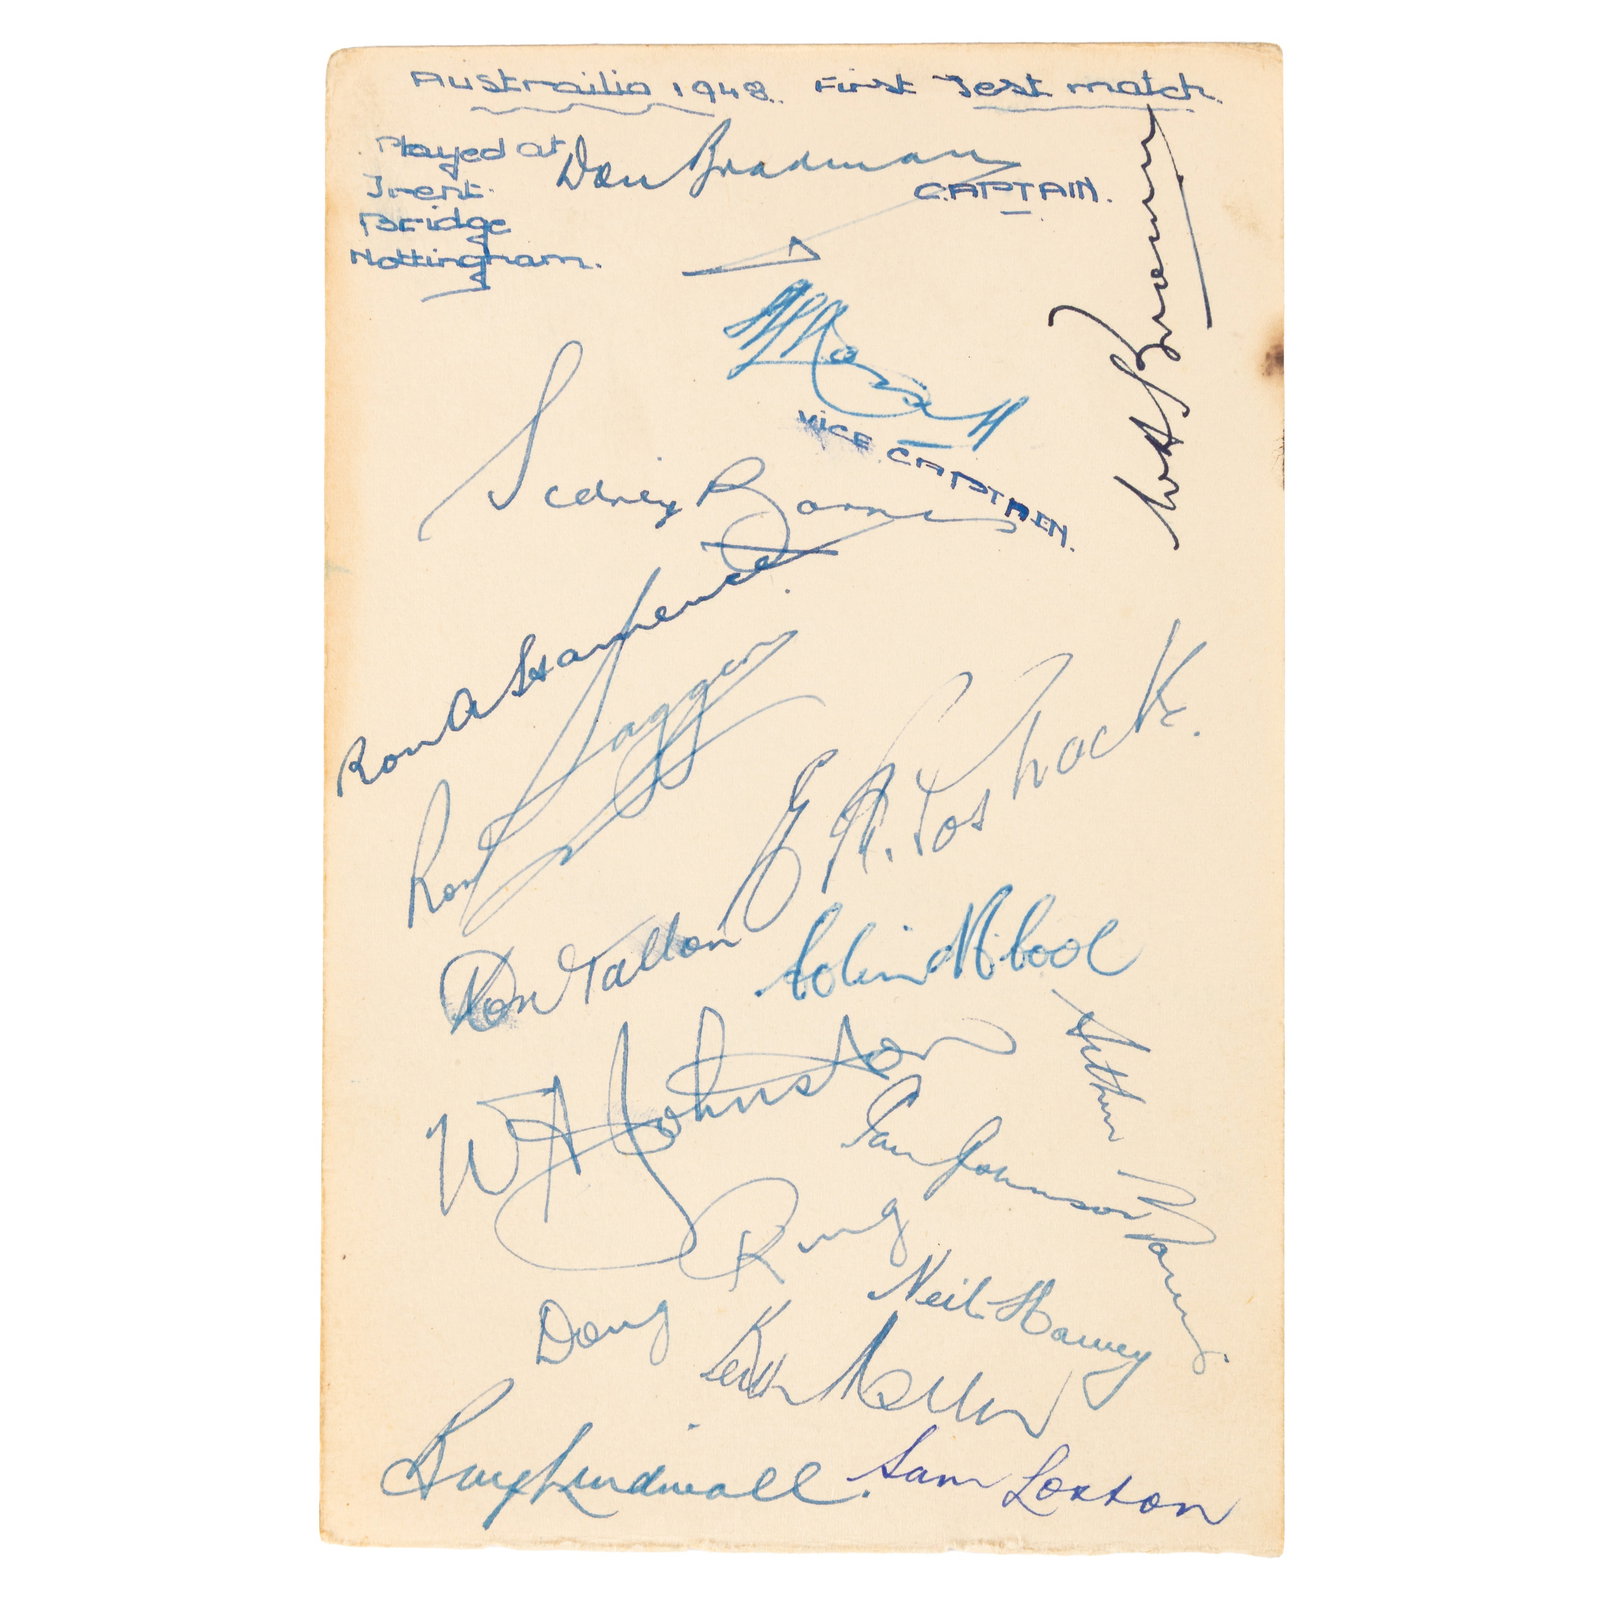 Austrailia 1948. First Test match.
Played at
Trent
Bridge
Nottingham.
Don Bradman
CAPTAIN.
W A Brown
VICE CAPTAIN.
Sidney Barnes
Ron A Hamence.
Ron Saggers
E R. Toshack.
Don Tallon
Colin McCool
W A Johnston
Arthur Morris
Ian Johnson
Doug Ring
Neil Harvey
Keith Miller
Ray Lindwall.
Sam Loxton